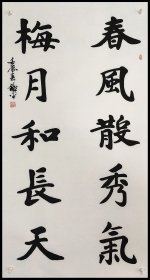 春風散秀氣
梅月和長天